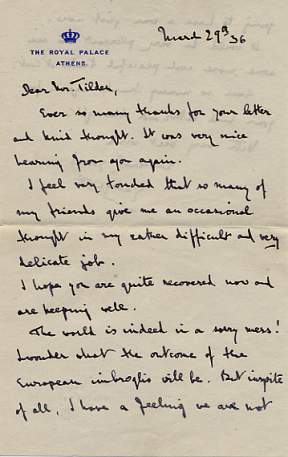 March 29th 36
THE ROYAL PALACE
ATHENS.
Dear Mr. Tilden,
Ever so many thanks for your letter
and kind thought. It was very nice
hearing from you again.
I feel very touched that so many of
my friends give me an occasional
thought in my rather difficult and very
delicate job.
I hope you are quite recovered now and
are keeping well.
The world is indeed in a sorry mess!
I wonder what the outcome of the
European imbroglio will be. But inspite
of all, I have a feeling we are not